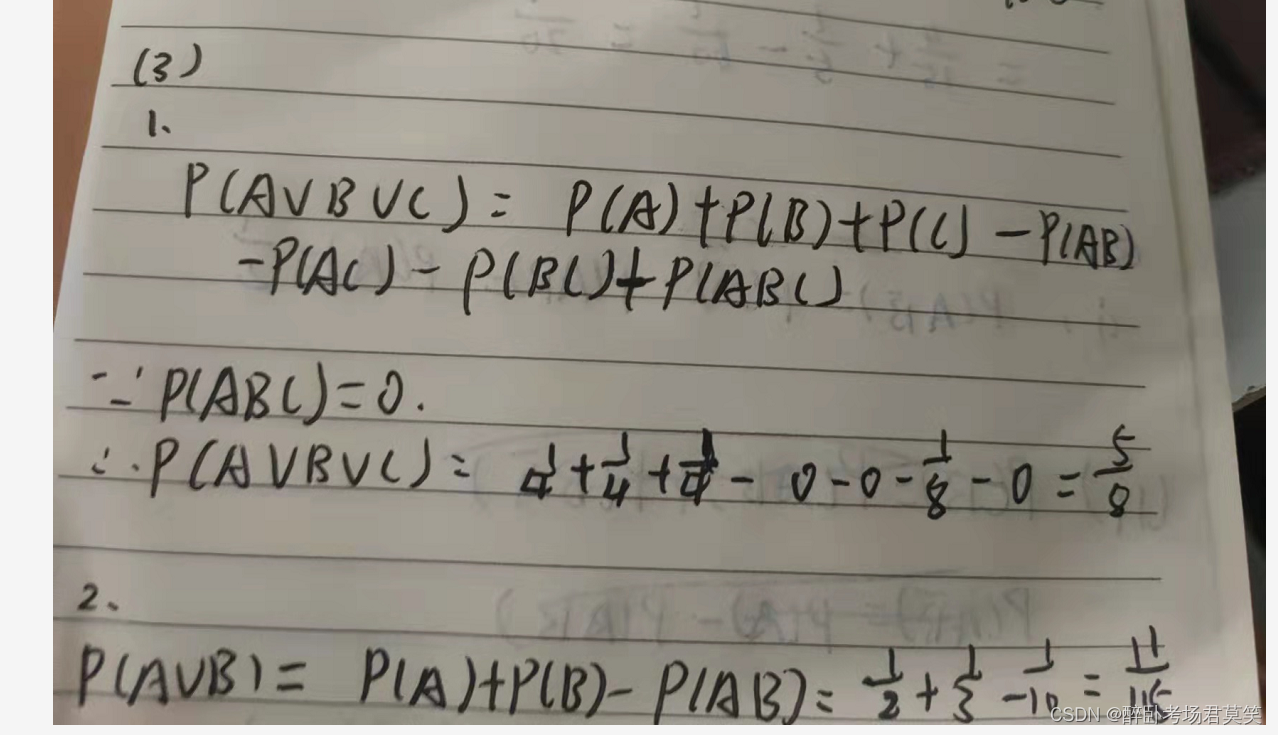 (3)
1、
P(A∪B∪C) = P(A)+P(B)+P(C) -P(AB)
-P(AC) - P(BC)+P(ABC)
∵ P(ABC)=0.
∴ P(A∪B∪C) = 1/4 + 1/4 + 1/4 - 0 - 0 - 1/8 - 0 = 5/8
2、
P(A∪B) = P(A)+P(B)- P(AB) = 1/2 + 1/3 - 1/10 = 11/15
CSDN @醉卧考场君莫笑